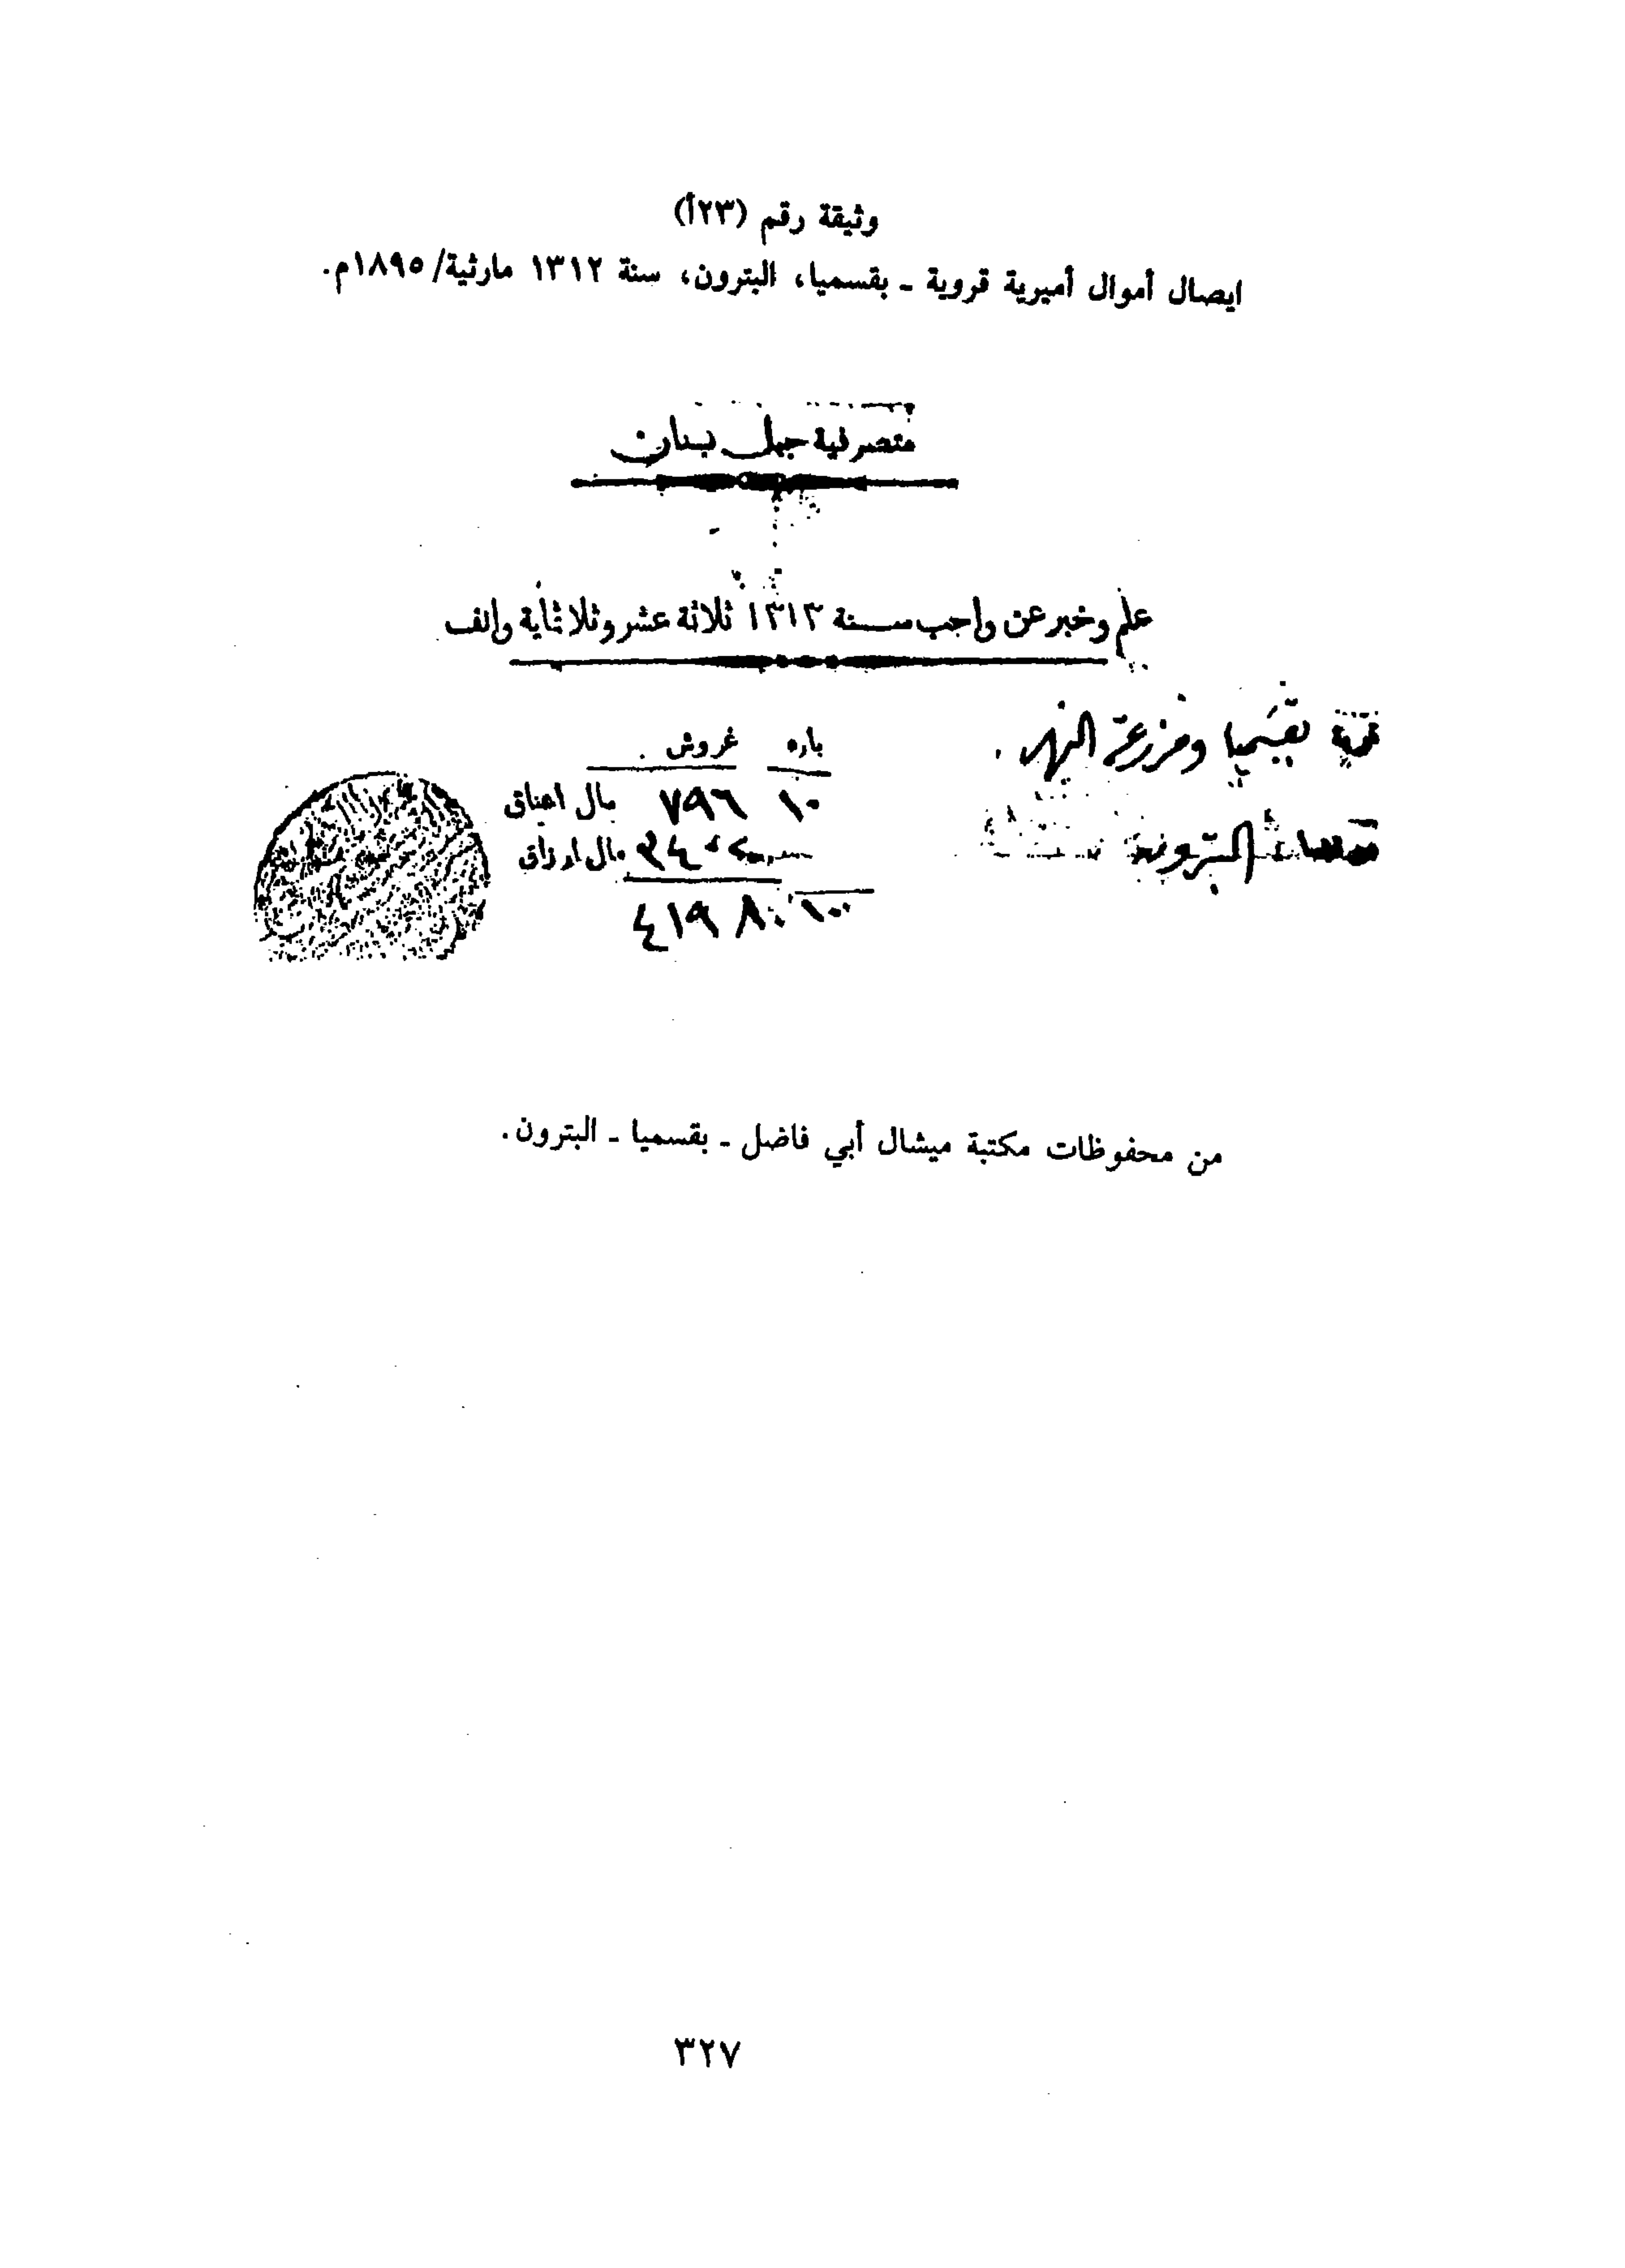 وثيقة رقم (٢٣أ)
ايصال أموال أميرية قروية ـ بقسميا، البترون، سنة ١٣١٢ مارثية/١٨٩٥م.
متصرفية جبل لبنان
علم وخبر عن واجب سنة ١٣١٣ ثلاثة عشر وثلاثماية والف
قرية بقسميا ومزرعة النهر
باره غروش
١٠ ٧٩٦ مال اعناق
٣٤٠٢ مال ارزاق
البترون
١٠ ٤١٩٨
من محفوظات مكتبة ميشال أبي فاضل ـ بقسميا ـ البترون.
٣٢٧